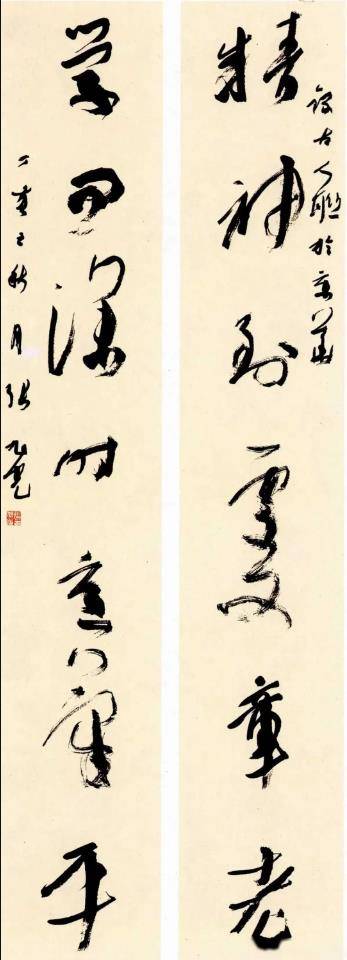 精神到處文章老
錄古人聯於京華
學問深時意氣平
丁亥之秋月張旭光